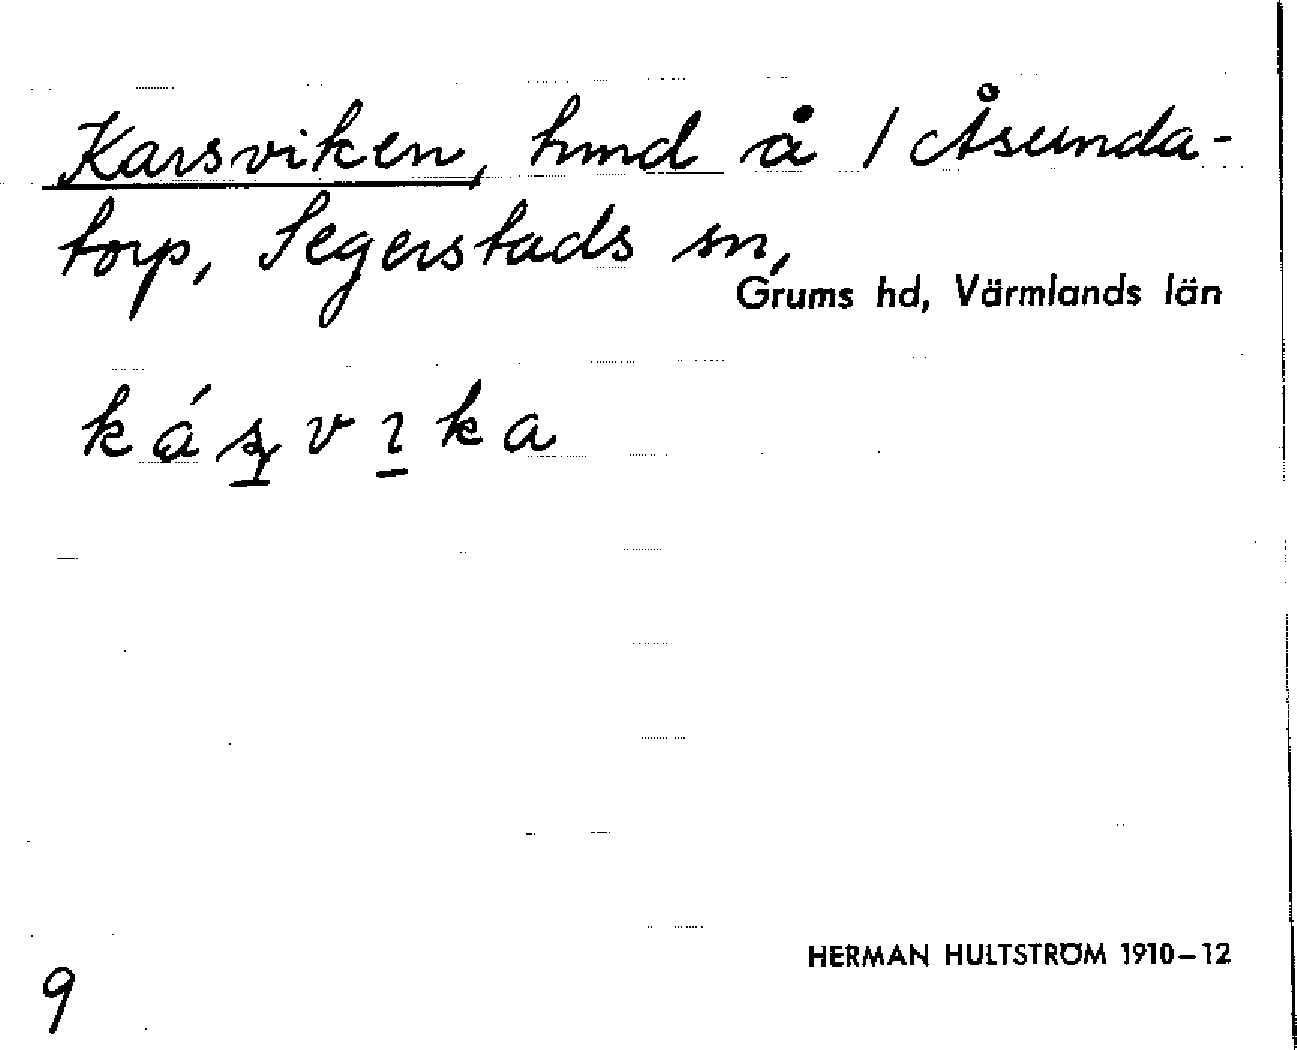 Karsviken, hmd å 1 Åsunda-
torp, Segerstads sn,
Grums hd, Värmlands län
HERMAN HULTSTRÖM 1910–12
9